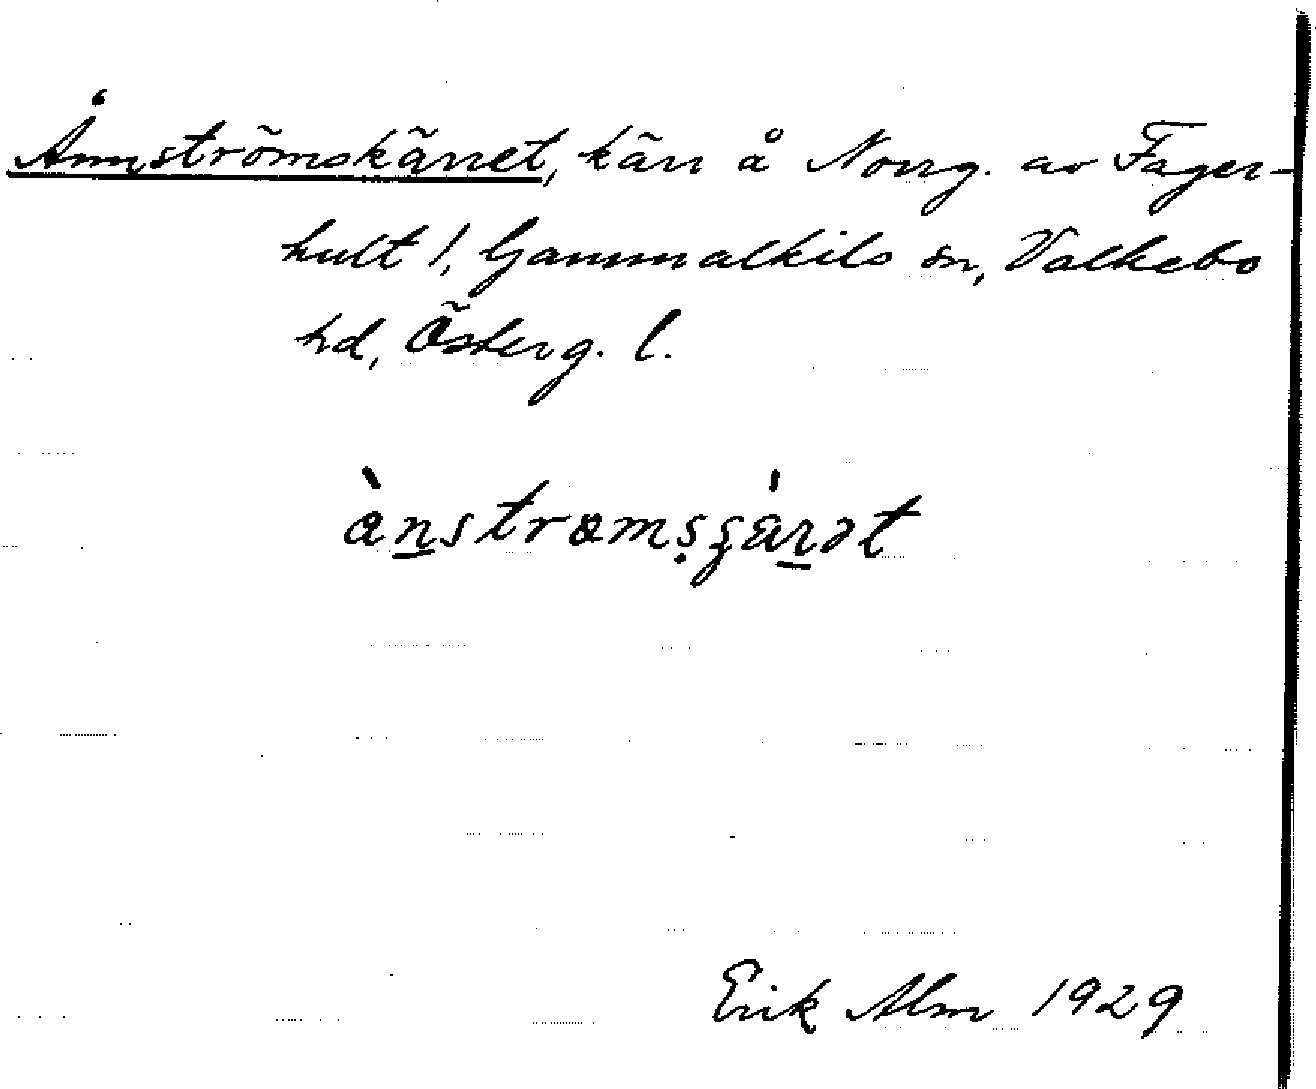 Ånnströmskärret, kärr å Norrg. av Fager-
hult !, Gammalkils sn, Valkebo
hd, Österg. l.
ànstrømsʂɛ́arət
Erik Alm 1929